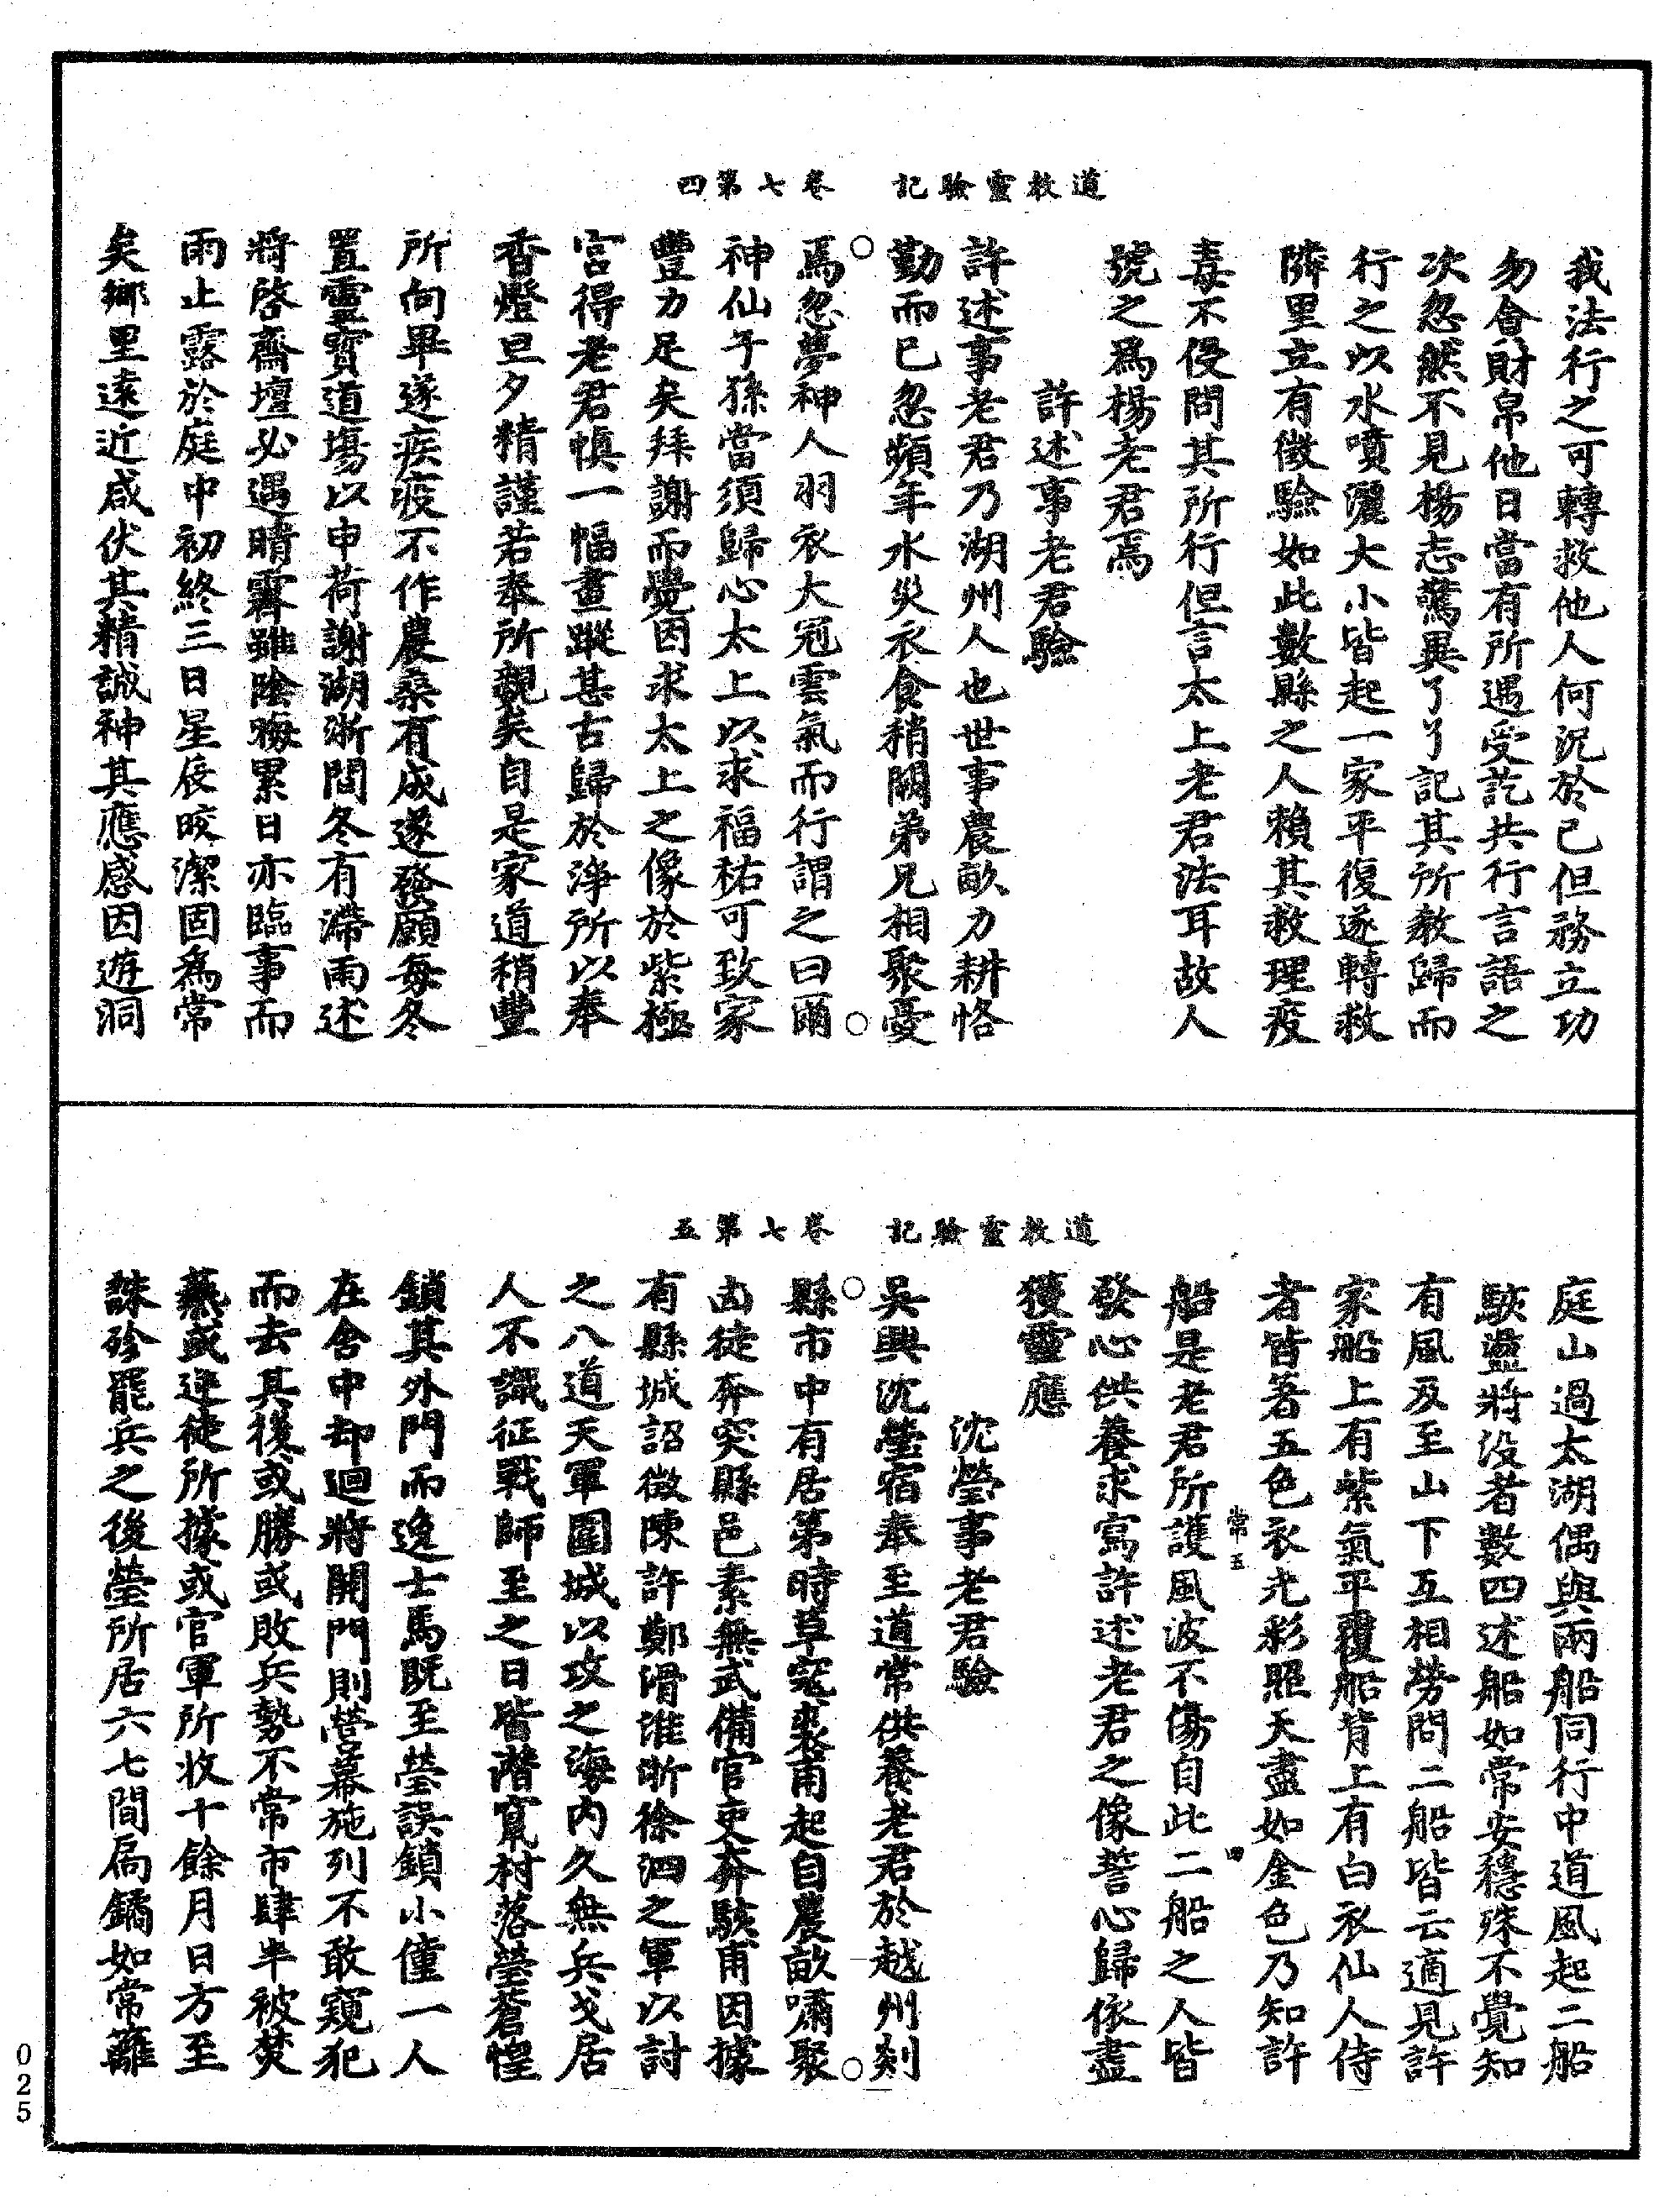 道教靈驗記　卷七第四
我法行之可轉救他人何況於己但務立功
勿會財帛他日當有所遇受訖共行言語之
次忽然不見楊志驚異了了記其所教歸而
行之以水噴灑大小皆起一家平復遂轉救
隣里立有徵驗如此數縣之人賴其救理疫
毒不侵問其所行但言太上老君法耳故人
號之爲楊老君焉
許述事老君驗
許述事老君乃湖州人也世事農畝力耕恪
勤而已忽頻年水災衣食稍闕弟兄相聚憂
焉忽夢神人羽衣大冠雲氣而行謂之曰爾
神仙子孫當須歸心太上以求福祐可致家
豐力足矣拜謝而覺因求太上之像於紫極
宮得老君幀一幅畫蹤甚古歸於淨所以奉
香燈旦夕精謹若奉所親矣自是家道稍豐
所向畢遂疾疫不作農桑有成遂發願每冬
置靈寶道場以申荷謝湖浙間冬有滯雨述
將啓齋壇必遇晴霽雖陰晦累日亦臨事而
雨止露於庭中初終三日星辰皎潔固爲常
矣鄉里遠近咸伏其精誠神其應感因遊洞
道教靈驗記　卷七第五
庭山過太湖偶與兩船同行中道風起二船
駭盪將没者數四述船如常安穩殊不覺知
有風及至山下互相勞問二船皆云適見許
家船上有紫氣平覆船背上有白衣仙人侍
者皆著五色衣光彩照天盡如金色乃知許
常五　四
船是老君所護風波不傷自此二船之人皆
發心供養求寫許述老君之像誓心歸依盡
獲靈應
沈瑩事老君驗
吳興沈瑩宿奉至道常供養老君於越州剡
縣市中有居第時草寇裘甫起自農畝嘯聚
凶徒奔突縣邑素無武備官吏奔駭甫因據
有縣城詔徵陳許鄭滑淮浙徐泗之軍以討
之八道天軍圍城以攻之海内久無兵戈居
人不識征戰師至之日皆潛竄村落瑩蒼惶
鎖其外門而逸士馬既至瑩誤鎖小僮一人
在舍中却迴將開門則營幕施列不敢窺犯
而去其後或勝或敗兵勢不常市肆半被焚
爇或逆徒所據或官軍所收十餘月日方至
誅殄罷兵之後瑩所居六七間扃鐍如常籬
025